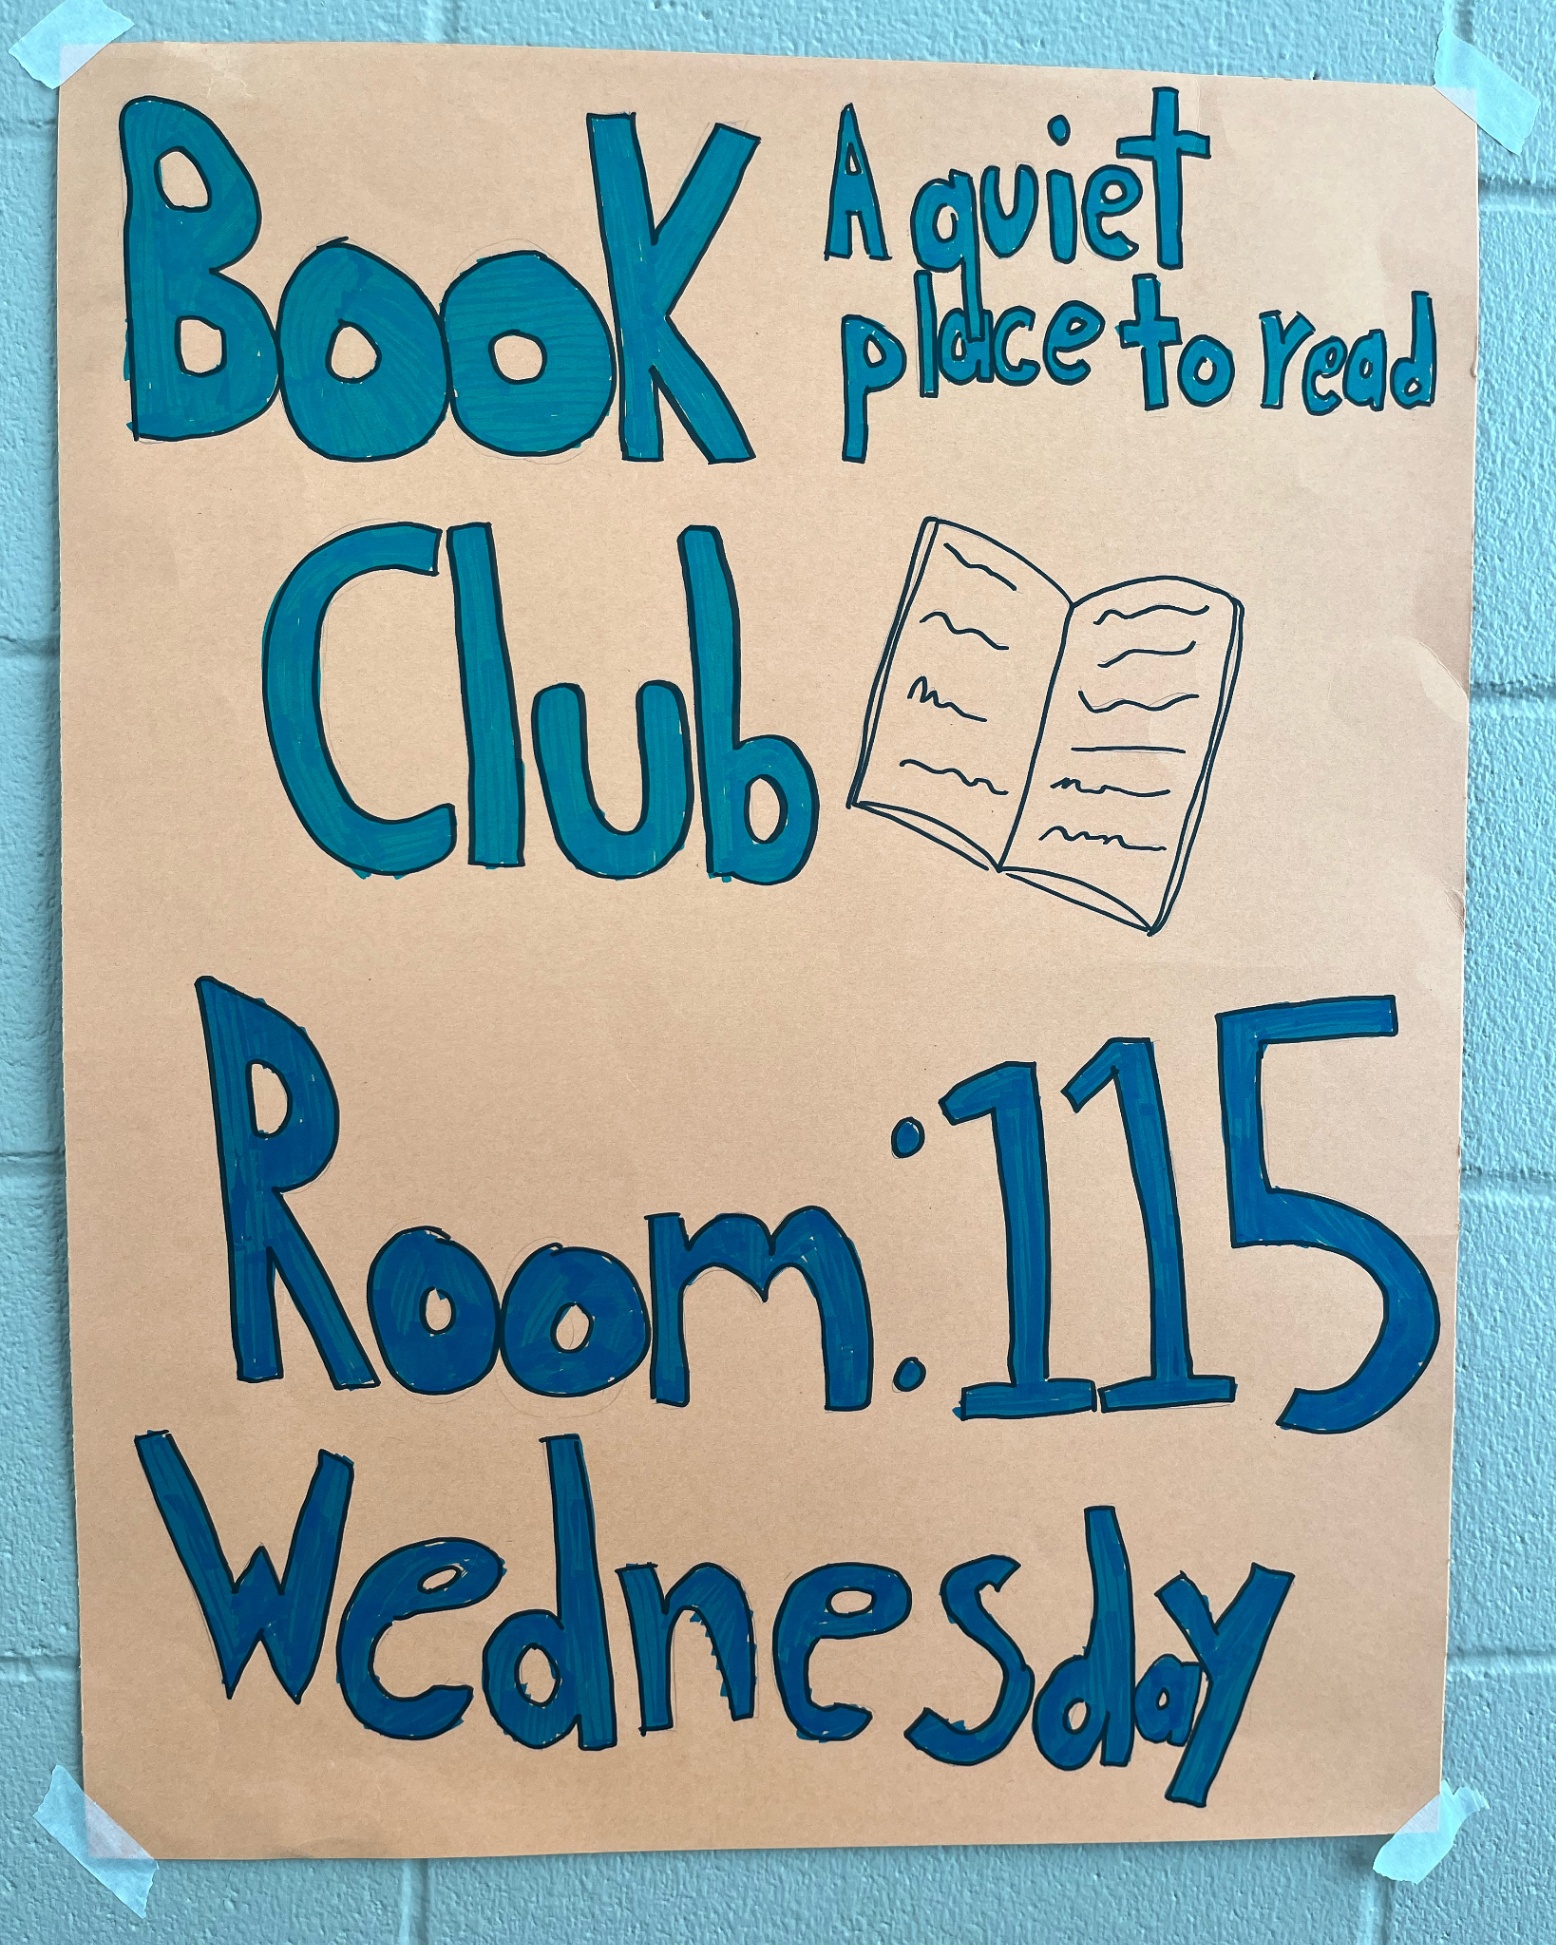 Book
A quiet
place to read
Club
Room: 115
Wednesday